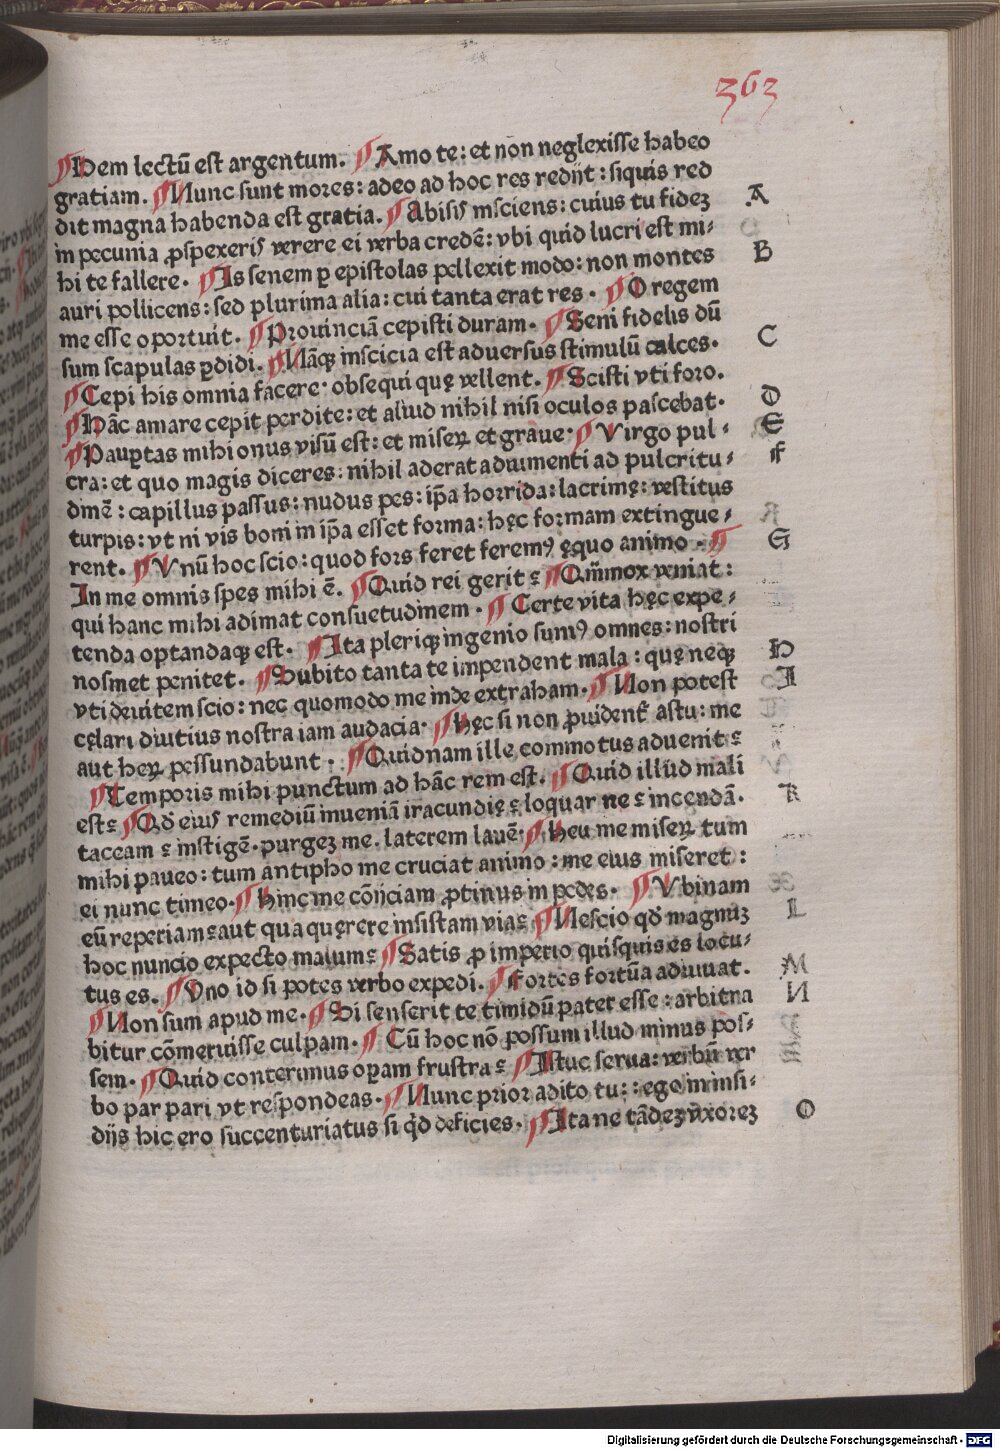 363
¶Hem lectū est argentum. ¶Amo te: et non neglexisse habeo
gratiam. ¶Nunc sunt mores: adeo ad hoc res redijt: siquis red
dit magna habenda est gratia. ¶Abisis insciens: cuius tu fidez
A
in pecunia ꝓspexeris verere ei verba credē: vbi quid lucri est mi⸗
B
hi te fallere. ¶Is senem ꝑ epistolas pellexit modo: non montes
auri pollicens: sed plurima alia: cui tanta erat res. ¶O regem
me esse oportuit. ¶Prouinciā cepisti duram. ¶Seni fidelis dū
C
sum scapulas ꝑdidi. ¶Nāqꝫ inscicia est aduersus stimulū calces.
¶Cepi his omnia facere· obsequi quę vellent. ¶Scisti vti foro.
D
¶Hāc amare cepit perdite: et aliud nihil nisi oculos pascebat.
E
¶Pauꝑtas mihi onus visū est: et miseꝝ et graue· ¶Virgo pul⸗
F
cra: et quo magis diceres: nihil aderat adiumenti ad pulcritu⸗
dinē: capillus passus: nudus pes: ip̄a horrida: lacrimę: vestitus
turpis: vt ni vis boni in ip̄a esset forma: hęc formam extingue⸗
G
rent. ¶Vnū hoc scio: quod fors feret feremꝰ ęquo animo. ¶
In me omnis spes mihi ē. ¶Quid rei gerit? ¶Qm̄mox veniat:
qui hanc mihi adimat consuetudinem. ¶Certe vita hęc expe⸗
tenda optandaqꝫ est. ¶Ita pleriqꝫ ingenio sumꝰ omnes: nostri
H
nosmet penitet. ¶Subito tanta te impendent mala: quę neqꝫ
I
vti deuitem scio: nec quomodo me inde extraham. ¶Non potest
cęlari diutius nostra iam audacia· ¶Hęc si non ꝓuident̄ astu: me
aut heꝝ pessundabunt. ¶Quidnam ille commotus aduenit?
¶Temporis mihi punctum ad hāc rem est. ¶Quid illud mali
K
est? ¶Qd̄ eius remediū inueniā iracundię? loquar ne? incendā.
taceam? instigē. purgez me. laterem lauē. ¶Heu me miseꝝ tum
mihi paueo: tum antipho me cruciat animo: me eius miseret:
ei nunc timeo. ¶Hinc me cōijciam ꝓtinus in pedes. ¶Vbinam
L
eū reperiam? aut qua quęrere insistam via? ¶Nescio qd̄ magnuꝫ
hoc nuncio expecto malum? ¶Satis ꝓ imperio quisquis es locu⸗
M
tus es. ¶Vno id si potes verbo expedi. ¶Fortes fortūa adiuuat.
N
¶Non sum apud me. ¶Si senserit te timidū pater esse: arbitra
bitur cōmeruisse culpam. ¶Cū hoc nō possum illud minus pos⸗
sem. ¶Quid conterimus oꝑam frustra? ¶Istuc serua: verbū ver
bo par pari vt respondeas. ¶Nunc prior adito tu: ego in insi⸗
dijs hic ero succenturiatus si qd̄ deficies. ¶Itane tādez vxorez
O
Digitalisierung gefördert durch die Deutsche Forschungsgemeinschaft - DFG